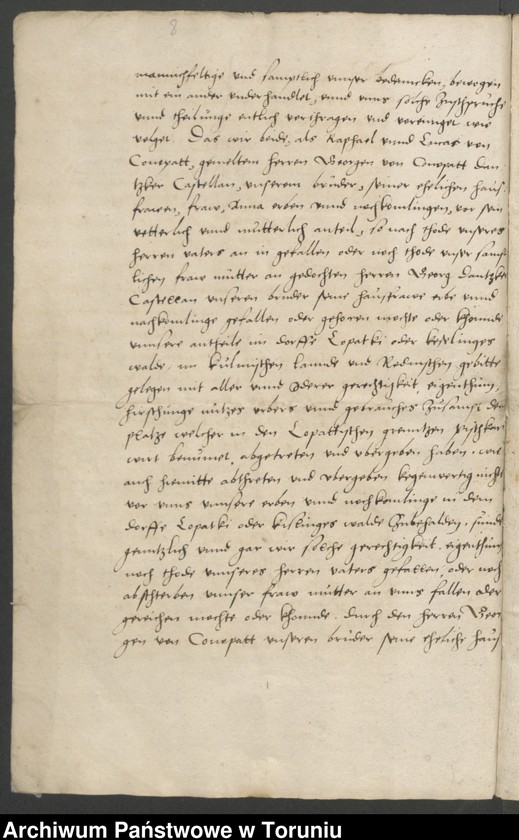 8
mannichfeltige vnd samptlich vnser bedencken, bewogen
mit ein ander vnderhandlet, vnnd vnns solche Zusprüche
vnnd theilunge entlich vorthragen vnd voreiniget wie
volget. Das wir beide, als Raphael vnnd Lucas von
Conopatt, gemeltem herren Georgen von Conopatt Dan
tzker Castellan, vnserem bruder, seiner ehelichen haus
frawen, fraw, Anna erben vnnd nachkomlingen, vor sein
vetterlich vnnd mütterlich anteil, so nach thode vnseres
herren vaters an in gefallen oder noch thode vnser samt
lichen fraw mütter an gedochten herren Georg Dantzker
Castellan vnseren bruder seine hausfrawe erbe vnnd
nachkomlinge gefallen oder gehoren mochte oder khonnde
vnnsere antheile im dorffe Lopatki oder keselinges
walde, im kulmischen lannde vnd Redinschen gebitte
gelegen mit aller vnnd Jderer gerechtigkeit, eigenthum,
hirschunge nützes erbers vnnd gebrauches Zusampt dem
platze welcher in den Lopattischen grenitzen
wirt benümet, abgetreten vnd vbergeben haben. wie
auch hiemitte abthreten vnd vbergeben kegenwertig nichts
vor vnns vnnsere erben vnnd nachkomlinge in dem
dorffe Lopatki oder kislinges walde Zubehalden. sunder
gentzlich vnnd gar wir solche gerechtigkeit, eigenthum
noch thode vnnseres herren vaters gefallen, oder noch
absthterben vnnser fraw mütter an vnns fallen oder
gereichen mochte oder khonnde. durch den herren Geor
gen von Conopatt vnseren bruder seine eheliche haus
Archiwum Państwowe w Toruniu